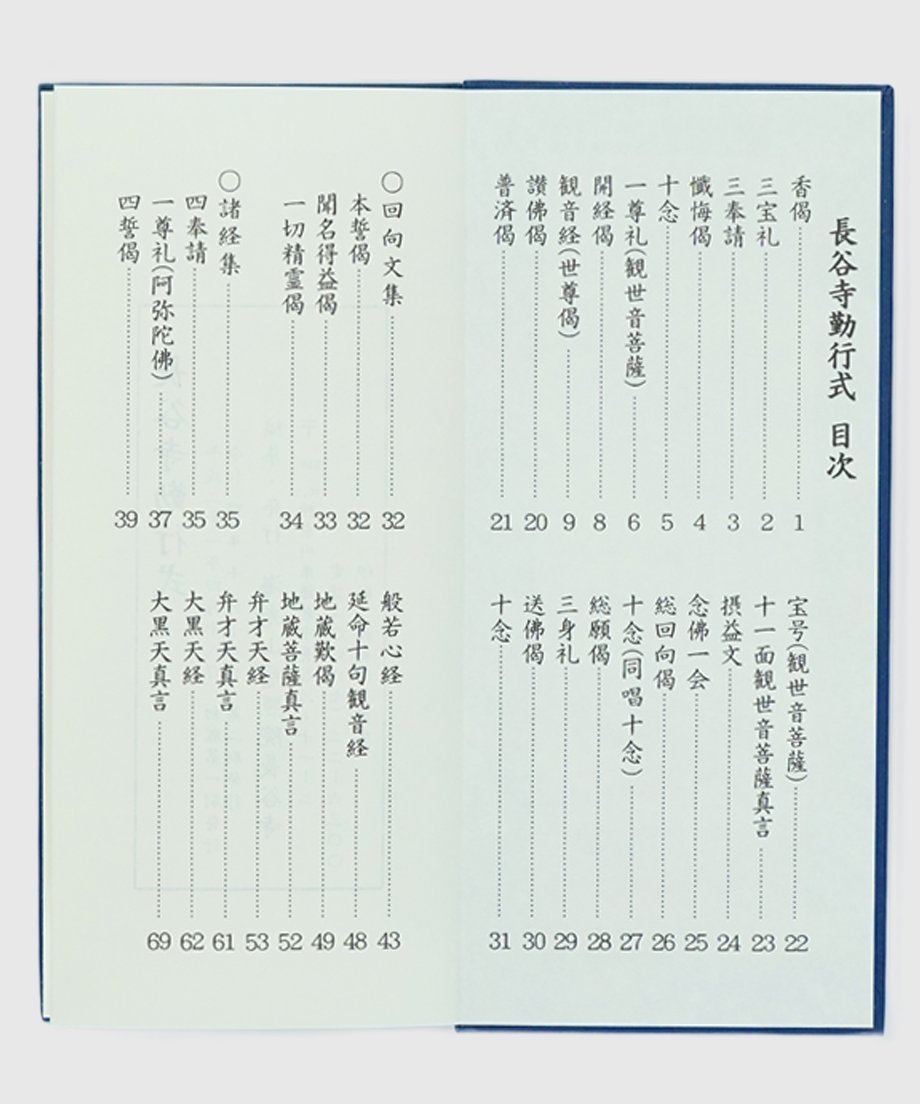 長谷寺勤行式 目次
香偈 1
三宝礼 2
三奉請 3
懺悔偈 4
十念 5
一尊礼(観世音菩薩) 6
開経偈 8
観音経(世尊偈) 9
讃佛偈 20
普済偈 21
宝号(観世音菩薩) 22
十一面観世音菩薩真言 23
摂益文 24
念佛一会 25
総回向偈 26
十念(同唱十念) 27
総願偈 28
三身礼 29
送佛偈 30
十念 31
〇回向文集 32
本誓偈 32
聞名得益偈 33
一切精霊偈 34
〇諸経集 35
四奉請 35
一尊礼(阿弥陀佛) 37
四誓偈 39
般若心経 43
延命十句観音経 48
地蔵歎偈 49
地蔵菩薩真言 52
弁才天経 53
弁才天真言 61
大黒天経 62
大黒天真言 69